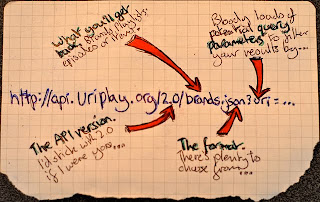 What you'll get
back. Brands, playlists,
episodes or items.
Bloody loads of
potential query
parameters to filter
your results by...
http://api.uriplay.org/2.0/brands.json?uri=...
The API version.
I'd stick with 2.0
if I were you...
The format.
There's plenty to
choose from...